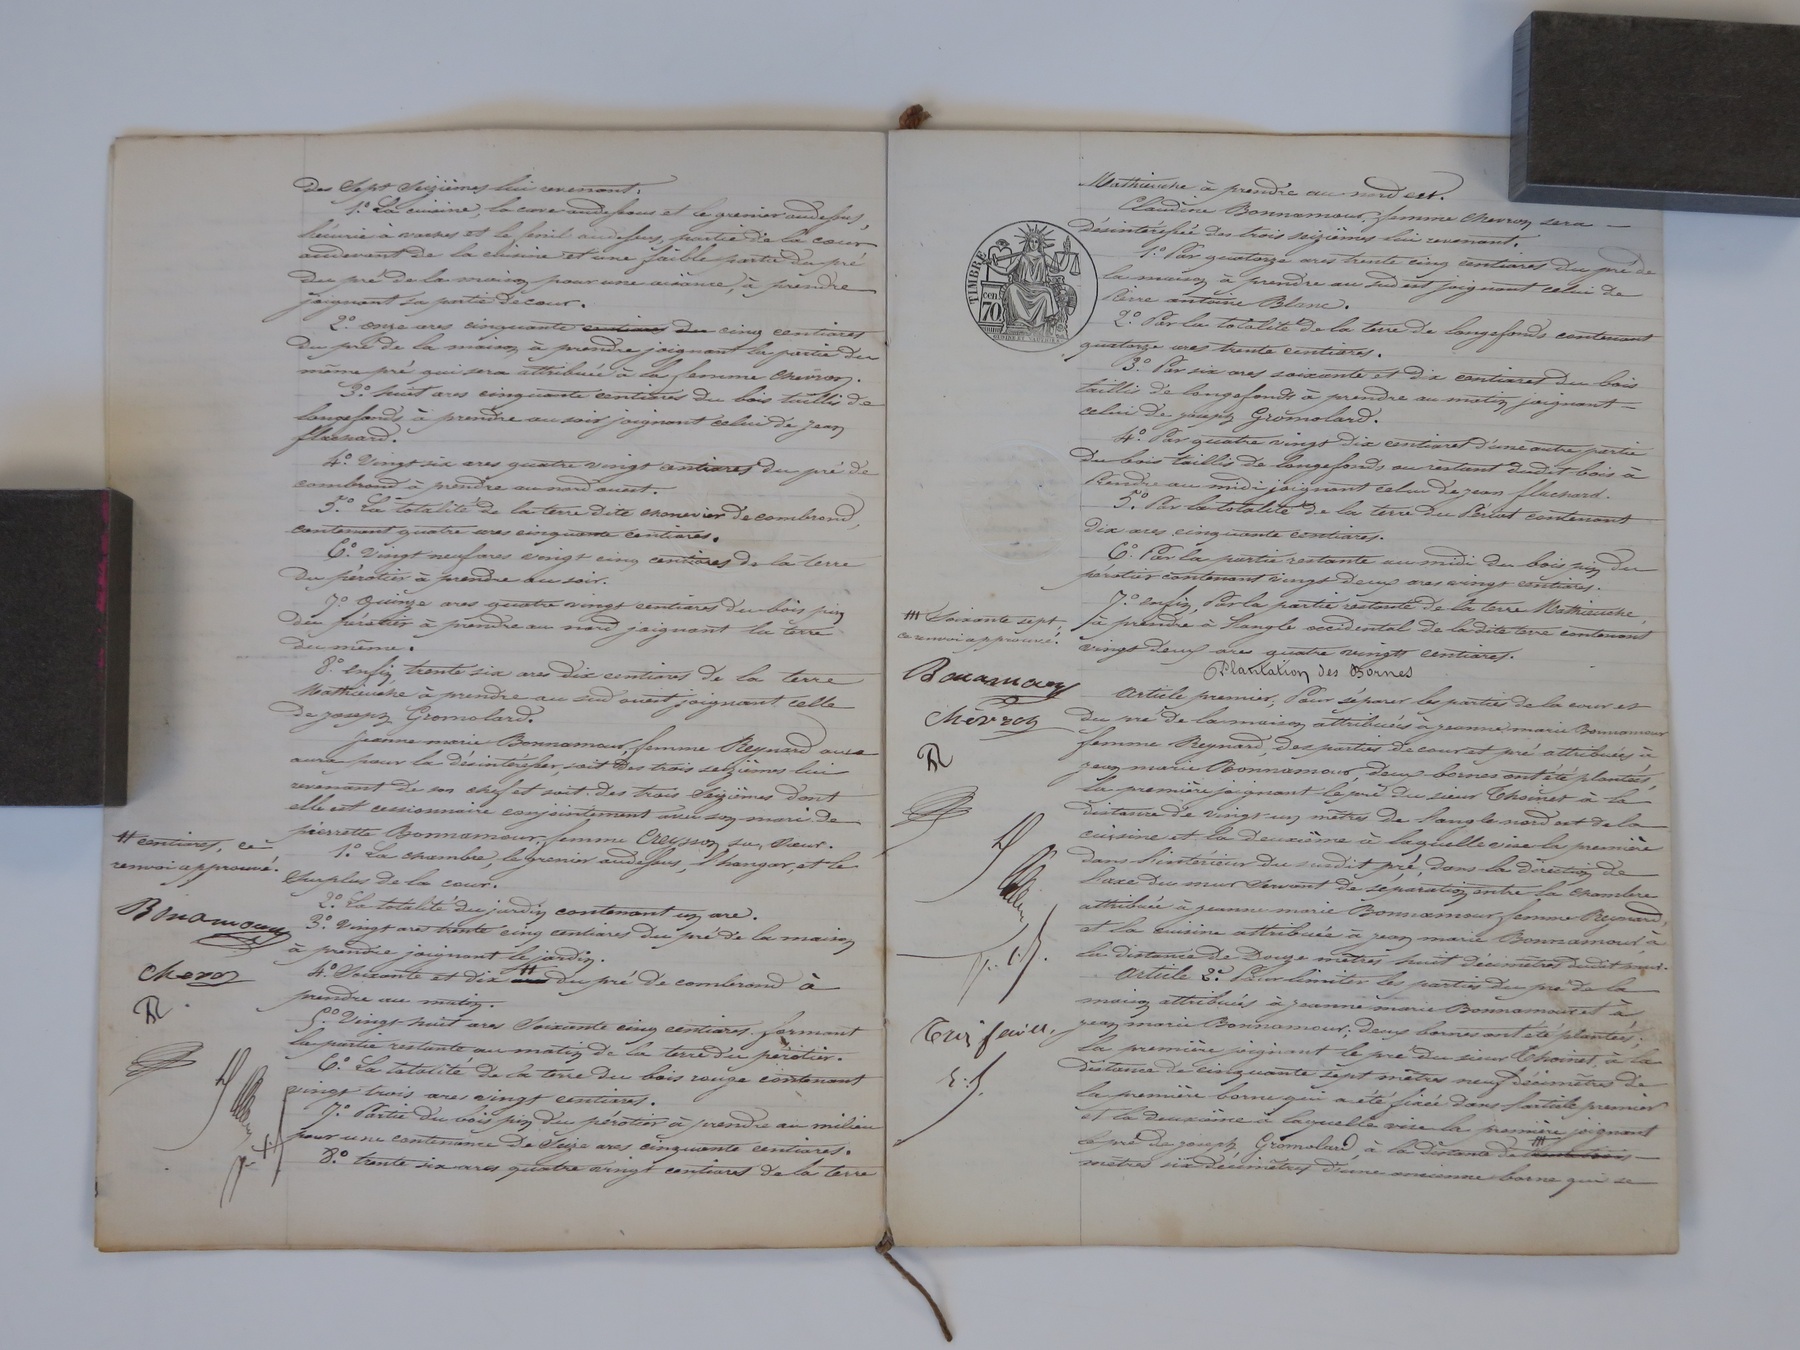 des Sept Seizièmes lui revenant.
1.° La cuisine, la cave audessous et le grenier audessus,
l'écurie à vaches et le fenil audessus, partie de la cour
audevant de la cuisine et une faible partie du pré
du pré de la maison pour une aisance, à prendre
joignant sa partie de cour.
2.° onze ares cinquante centiares du cinq centiares
du pré de la maison à prendre joignant la partie du
même pré qui sera attribuée à la femme Chevron.
3.° huit ares cinquante centiares du bois taillis de
longefonds à prendre au soir joignant celui de jean
flachard.
4.° Vingt six ares quatre vingt centiares du pré de
combrond à prendre au nord ouest.
5.° La totalité de la terre dite chenevier de combrond,
contenant quatre ares cinquante centiares.
6.° Vingt neuf ares vingt cinq centiares de la terre
du pérotier à prendre au soir.
7.° Quinze ares quatre vingt centiares du bois pin
du pérotier à prendre au nord joignant la terre
du même.
8.° enfin, trente six ares dix centiares de la terre
Mathieuche à prendre au sud ouest joignant celle
de joseph Gromolard.
jeanne marie Bonnamour, femme Reynard aura
aura pour la désintéresser, soit des trois seizièmes lui
revenant de son chef et soit des trois Seizièmes dont
elle est cessionnaire conjointement avec son mari de
pierrette Bonnamour, femme Creysson sa Sœur.
1.° La chambre, le grenier audessus, l'hangar, et le
Surplus de la cour.
2.° La totalité du jardin contenant un are.
3.° Vingt ares trente cinq centiares du pré de la maison
à prendre joignant le jardin.
4.° Soixante et dix # du pré de combrond à
prendre au matin.
5.° Vingt-huit ares Soixante cinq centiares formant
la partie restante au matin de la terre du pérotier.
6.° La totalité de la terre du bois rouge contenant
vingt trois ares vingt centiares.
7.° Partie du bois pin du pérotier à prendre au milieu
pour une contenance de Seize ares cinquante centiares.
8.° trente six ares quatre vingt centiares de la terre
# centiares, ce
renvoi approuvé.
Bonamour
Chevron
R
Mathieuche à prendre au nord est.
Claudine Bonnamour, femme Chevron sera
désintéressée des trois seizièmes lui revenant.
1.° Par quatorze ares trente cinq centiares du pré de
la maison à prendre au sud est joignant celui de
Pierre antoine Blanc.
2.° Par la totalité de la terre de longefonds contenant
quatorze ares trente centiares.
3.° Par six ares soixante et dix centiares du bois
taillis de longefonds à prendre au matin joignant
celui de joseph Gromolard.
4.° Par quatre vingt dix centiares d'une autre partie
du bois taillis de longefonds au restant dudit bois à
Prendre au midi joignant celui de jean flachard.
5.° Par la totalité de la terre du Périot contenant
dix ares cinquante centiares.
6.° Par la partie restante au midi du bois pin du
pérotier contenant vingt deux ares vingt centiares.
7.° enfin, Par la partie restante de la terre Mathieuche,
à prendre à l'angle occidental de la dite terre contenant
vingt deux ares quatre vingts centiares.
Plantation des Bornes
Article premier, Pour séparer les parties de la cour et
du pré de la maison attribuées à jeanne marie Bonnamour
femme Reynard, des parties de cour et pré attribuées à
jean marie Bonnamour, deux bornes ont été plantées,
la première joignant le pré du sieur Thoinet à la
distance de vingt-un mètres de l'angle nord est de la
cuisine et la deuxième à laquelle vise la première
dans l'intérieur du susdit pré, dans la direction de
l'axe du mur servant de séparation entre la chambre
attribuée à jeanne marie Bonnamour femme Reynard,
et la cuisine attribuée à jean marie Bonnamour à
la distance de Douze mètres huit décimètres dudit mur.
Article 2.e Pour limiter les parties du pré de la
maison attribués à jeanne marie Bonnamour et à
jean marie Bonnamour; deux bornes ont été plantées.
la première joignant le pré du sieur Thoinet, à la
distance de cinquante sept mètres neuf décimètres de
la première borne qui a été fixée dans l'article premier
et la deuxième à laquelle vise la première joignant
le pré de joseph Gromolard à la distance de ###
mètres six décimètres d'une ancienne borne qui se
TIMBRE
cen
70
### Soixante sept
ce renvoi approuvé.
Bonamour
Chevron
R